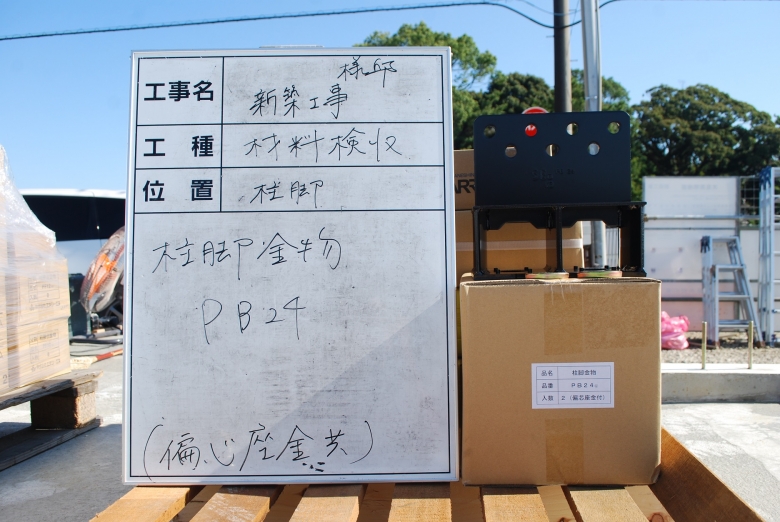 工事名
様邸
新築工事
工種
材料検収
位置
柱脚
柱脚金物
PB24
(偏心座金共)
品名 柱脚金物
品番 PB24c
入数 2(偏芯座金付)